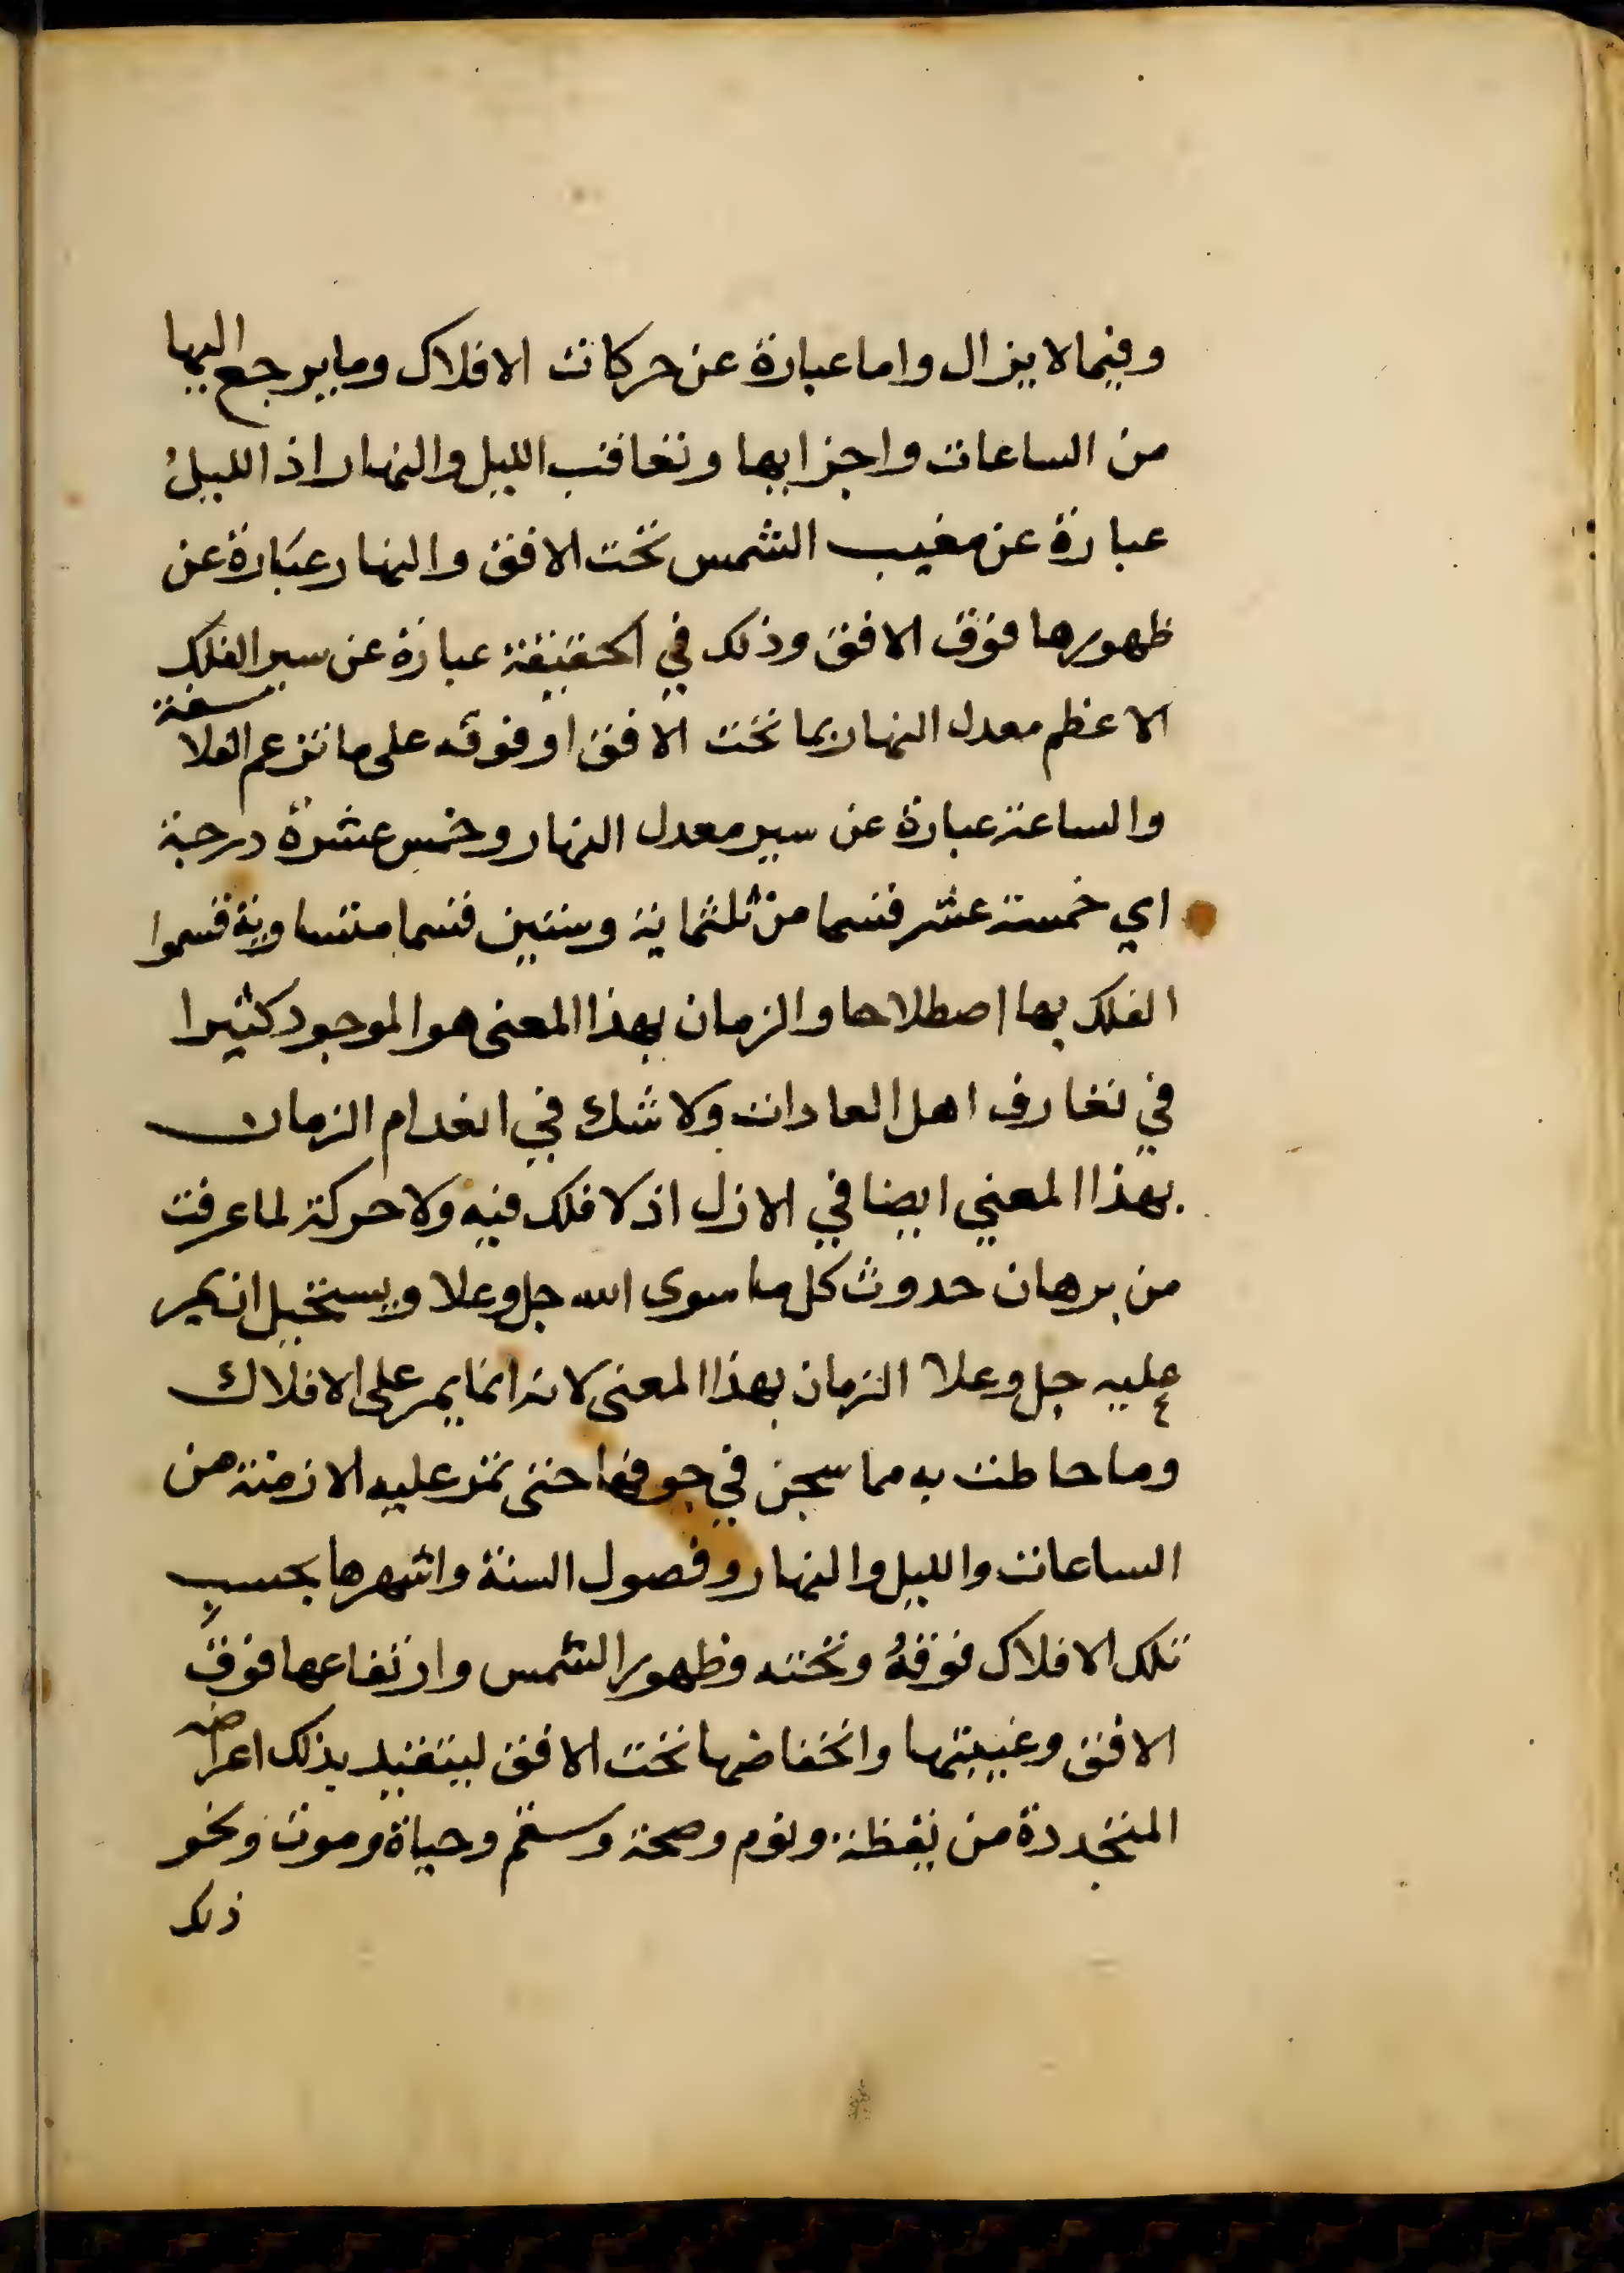 وفيما لا يزال واما عبارة عن حركات الافلاك وما يرجع اليها
من الساعات واجزايها وتعاقب الليل والنهار اذ الليل
عبارة عن مغيب الشمس تحت الافق والنهار عبارة عن
ظهورها فوق الافق وذلك في الحقيقة عبارة عن سير الفلك
الاعظم معدل النهار بما تحت الافق او فوقه على ما تزعم الفلاسفة
والساعة عبارة عن سير معدل النهار وخمس عشرة درجة
اي خمسة عشر قسما من ثلثماية وستين قسما متساوية قسموا
الفلك بها اصطلاحا والزمان بهذا المعنى هو الموجود كثيرا
في تعارف اهل العادات ولا شك في انعدام الزمان
بهذا المعني ايضا في الازل اذ لا فلك فيه ولا حركة لما عرفت
من برهان حدوث كل ما سوى الله جل وعلا ويستحيل ان يمر
عليه جل وعلا الزمان بهذا المعنى لانه انما يمر على الافلاك
وما حاطت به مما سجن في جوفها حتى تمر عليه الازمنة من
الساعات والليل والنهار وفصول السنة واشهرها بحسب
تلك الافلاك فوقهُ وتحته وظهور الشمس وارتفاعها فوق
الافق وغيبتها وانخفاضها تحت الافق ليتقيد بذلك اعراضه
المتجددة من يقظة ونوم وصحة وسقم وحياة وموت ونحو
ذلك